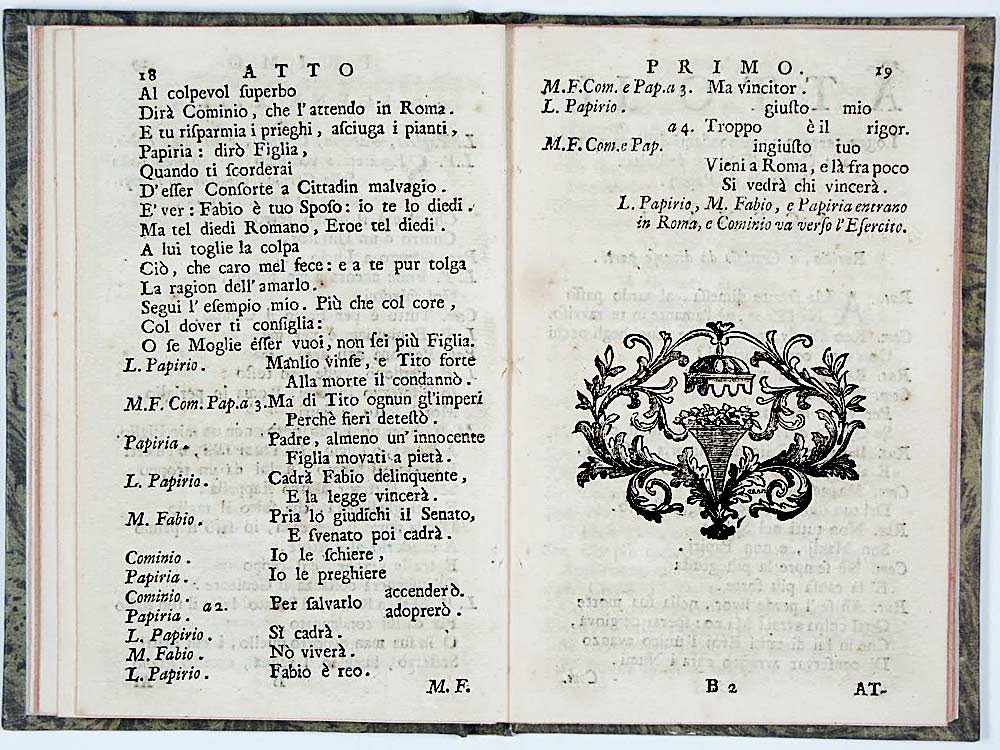 18 ATTO
Al colpevol ſuperbo
Dirà Cominio, che l'attendo in Roma.
E tu riſparmia i prieghi, aſciuga i pianti,
Papiria: dirò Figlia,
Quando ti ſcorderai
D'eſſer Conſorte a Cittadin malvagio.
E' ver: Fabio è tuo Spoſo: io te lo diedi.
Ma tel diedi Romano, Eroe tel diedi.
A lui toglie la colpa
Ciò, che caro mel fece: e a te pur tolga
La ragion dell'amarlo.
Segui l'eſempio mio. Più che col core,
Col dover ti conſiglia:
O ſe Moglie éſſer vuoi, non ſei più Figlia.
L. Papirio. Manlio vinſe, e Tito forte
Alla morte il condannò.
M.F. Com. Pap. a 3. Ma di Tito ognun gl'imperi
Perchè fieri deteſtò.
Papiria. Padre, almeno un'innocente
Figlia movati a pietà.
L. Papirio. Cadrà Fabio delinquente,
E la legge vincerà.
M. Fabio. Pria lo giudichi il Senato,
E ſvenato poi cadrà.
Cominio. Io le ſchiere,
Papiria. Io le preghiere
Cominio. accenderò.
a 2. Per ſalvarlo
Papiria. adoprerò.
L. Papirio. Sì cadrà.
M. Fabio. Nò viverà.
L. Papirio. Fabio è reo.
M. F.
PRIMO. 19
M.F. Com. e Pap. a 3. Ma vincitor.
L. Papirio. giuſto mio
a 4. Troppo è il rigor.
M.F. Com. e Pap. ingiuſto tuo
Vieni a Roma, e là fra poco
Si vedrà chi vincerà.
L. Papirio, M. Fabio, e Papiria entrano
in Roma, e Cominio va verſo l'Eſercito.
B 2 AT-